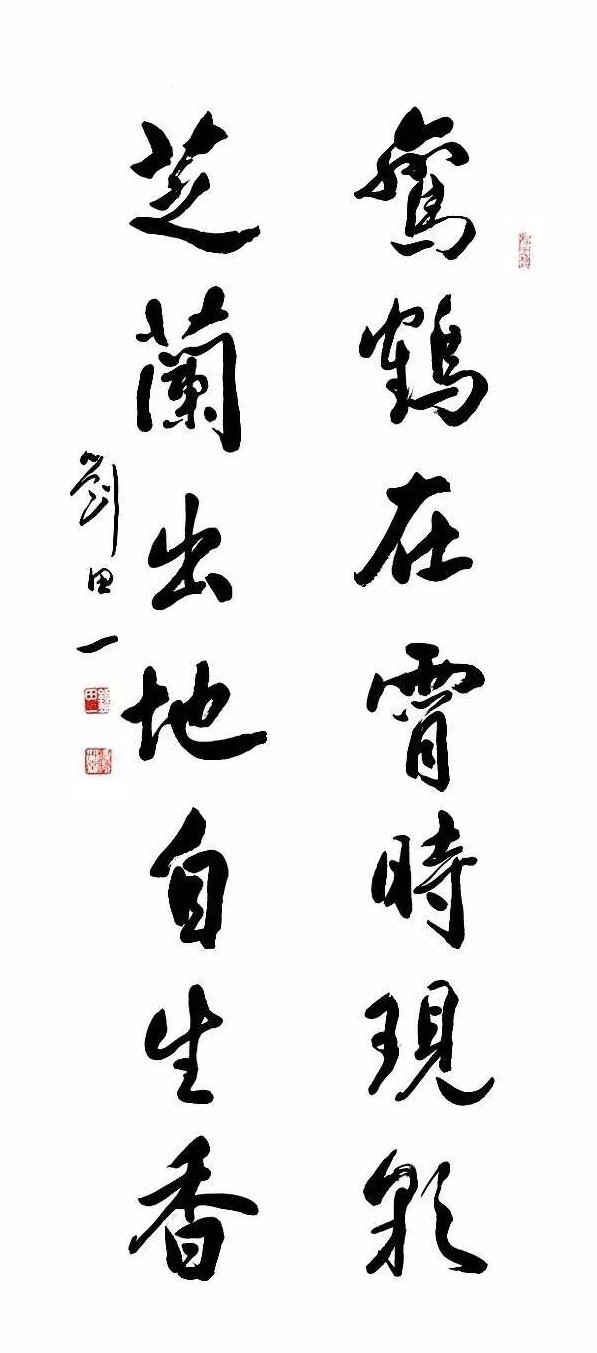 鸞鶴在霄時現彩
芝蘭出地自生香
劉田一